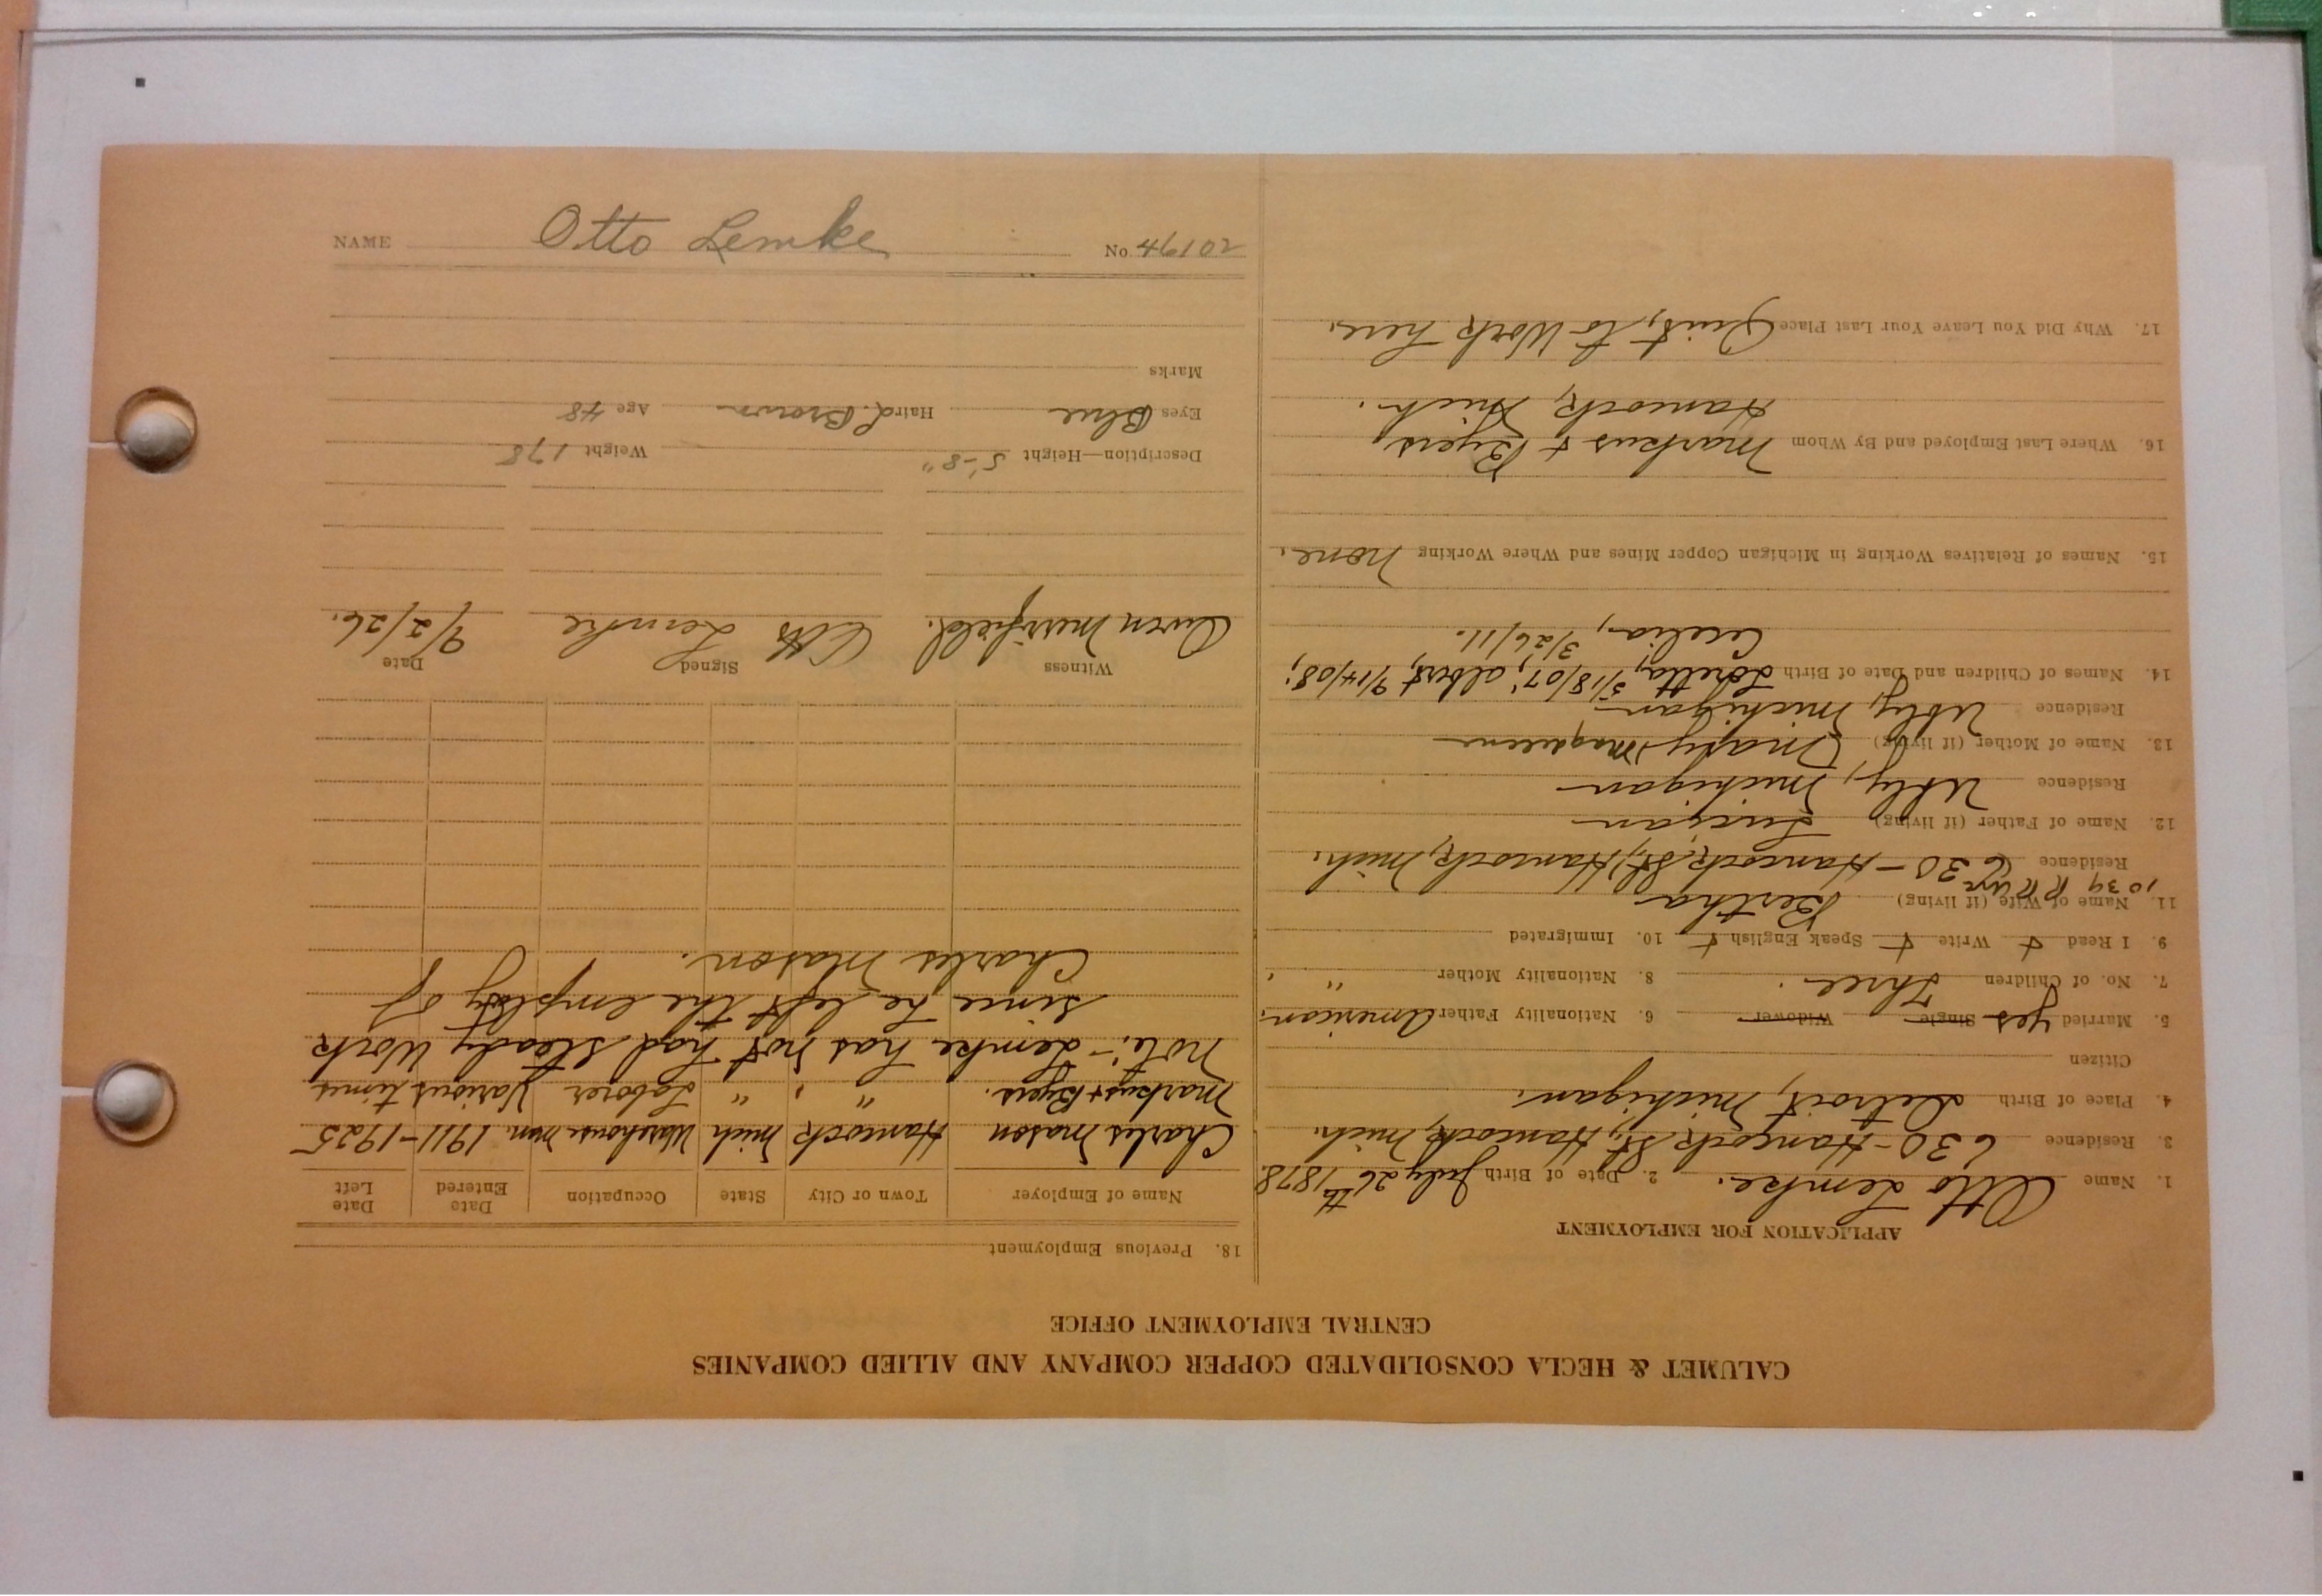 CALUMET & HECLA CONSOLIDATED COPPER COMPANY AND ALLIED COMPANIES
CENTRAL EMPLOYMENT OFFICE
APPLICATION FOR EMPLOYMENT
1. Name Otto Lemke. 2. Date of Birth July 26th 1878
3. Residence 630 - Hancock St., Hancock, Mich.
4. Place of Birth Detroit, Michigan.
Citizen
5. Married Yes Single Widower 6. Nationality Father American.
7. No. of Children Three. 8. Nationality Mother " "
9. I Read + Write + Speak English + 10. Immigrated
11. Name of Wife (if living) Bertha
1039
Residence 630 - Hancock St., Hancock, Mich.
12. Name of Father (if living)
Residence Ubly, Michigan
13. Name of Mother (if living) Mary
Residence Ubly, Michigan
14. Names of Children and Date of Birth Loretta, 5/18/07; Albert, 9/14/08;
Cecelia, 3/26/11.
15. Names of Relatives Working in Michigan Copper Mines and Where Working None.
16. Where Last Employed and By Whom Markus & Byers,
Hancock, Mich.
17. Why Did You Leave Your Last Place Quit, to Work here.
18. Previous Employment
Name of Employer Town or City State Occupation Date Entered Date Left
Charles Mason Hancock Mich Warehouse man. 1911 - 1925
Markus & Byers. " " Laborer Various times
Note:- Lemke has not had steady work
since he left the employ of
Charles Mason.
Witness Signed Date
Owen Merrfield. Otto Lemke 9/2/26.
Description—Height 5'-8" Weight 178
Eyes Blue Hair d. Brown Age 48
Marks
NAME Otto Lemke No. 20194